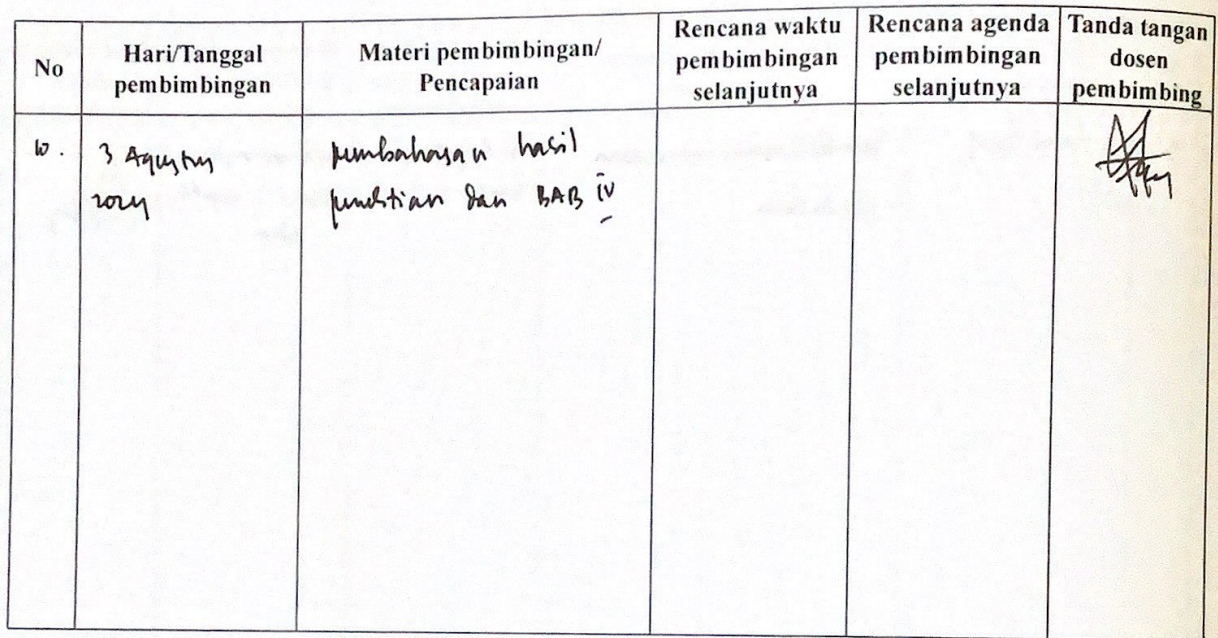 No
Hari/Tanggal
pembimbingan
Materi pembimbingan/
Pencapaian
Rencana waktu
pembimbingan
selanjutnya
Rencana agenda
pembimbingan
selanjutnya
Tanda tangan
dosen
pembimbing
10.
3 Agustus
2024
pembahasan hasil
penelitian dan BAB IV